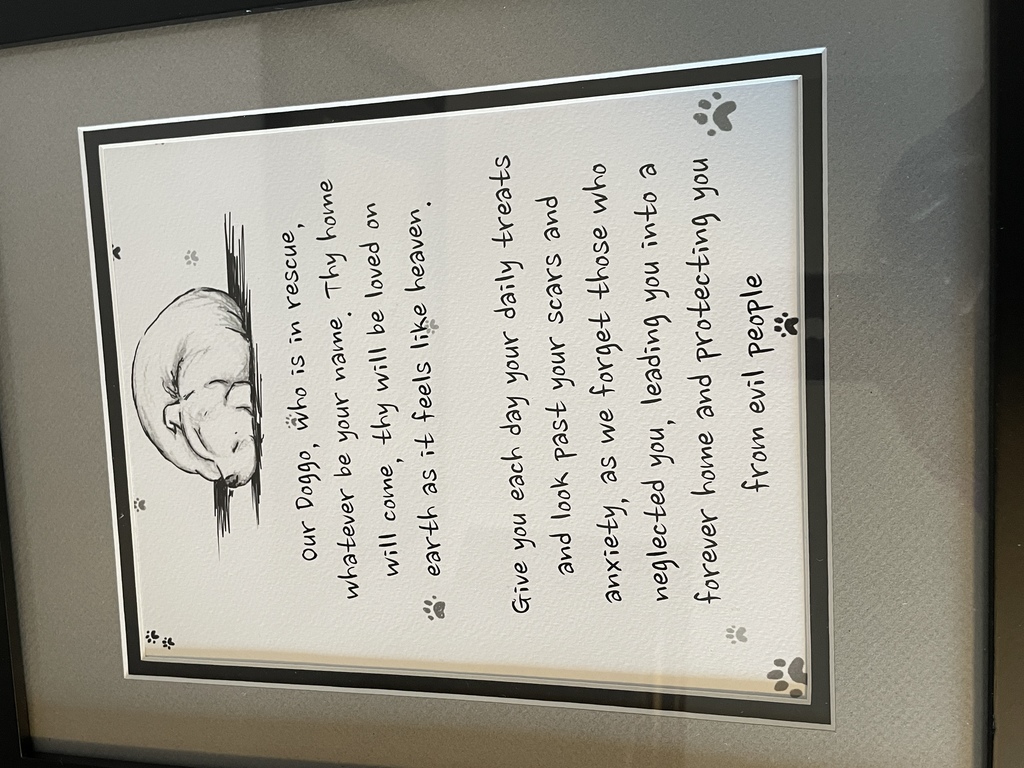 our Doggo, who is in rescue,
whatever be your name. Thy home
will come, thy will be loved on
earth as it feels like heaven.
Give you each day your daily treats
and look past your scars and
anxiety, as we forget those who
neglected you, leading you into a
forever home and protecting you
from evil people